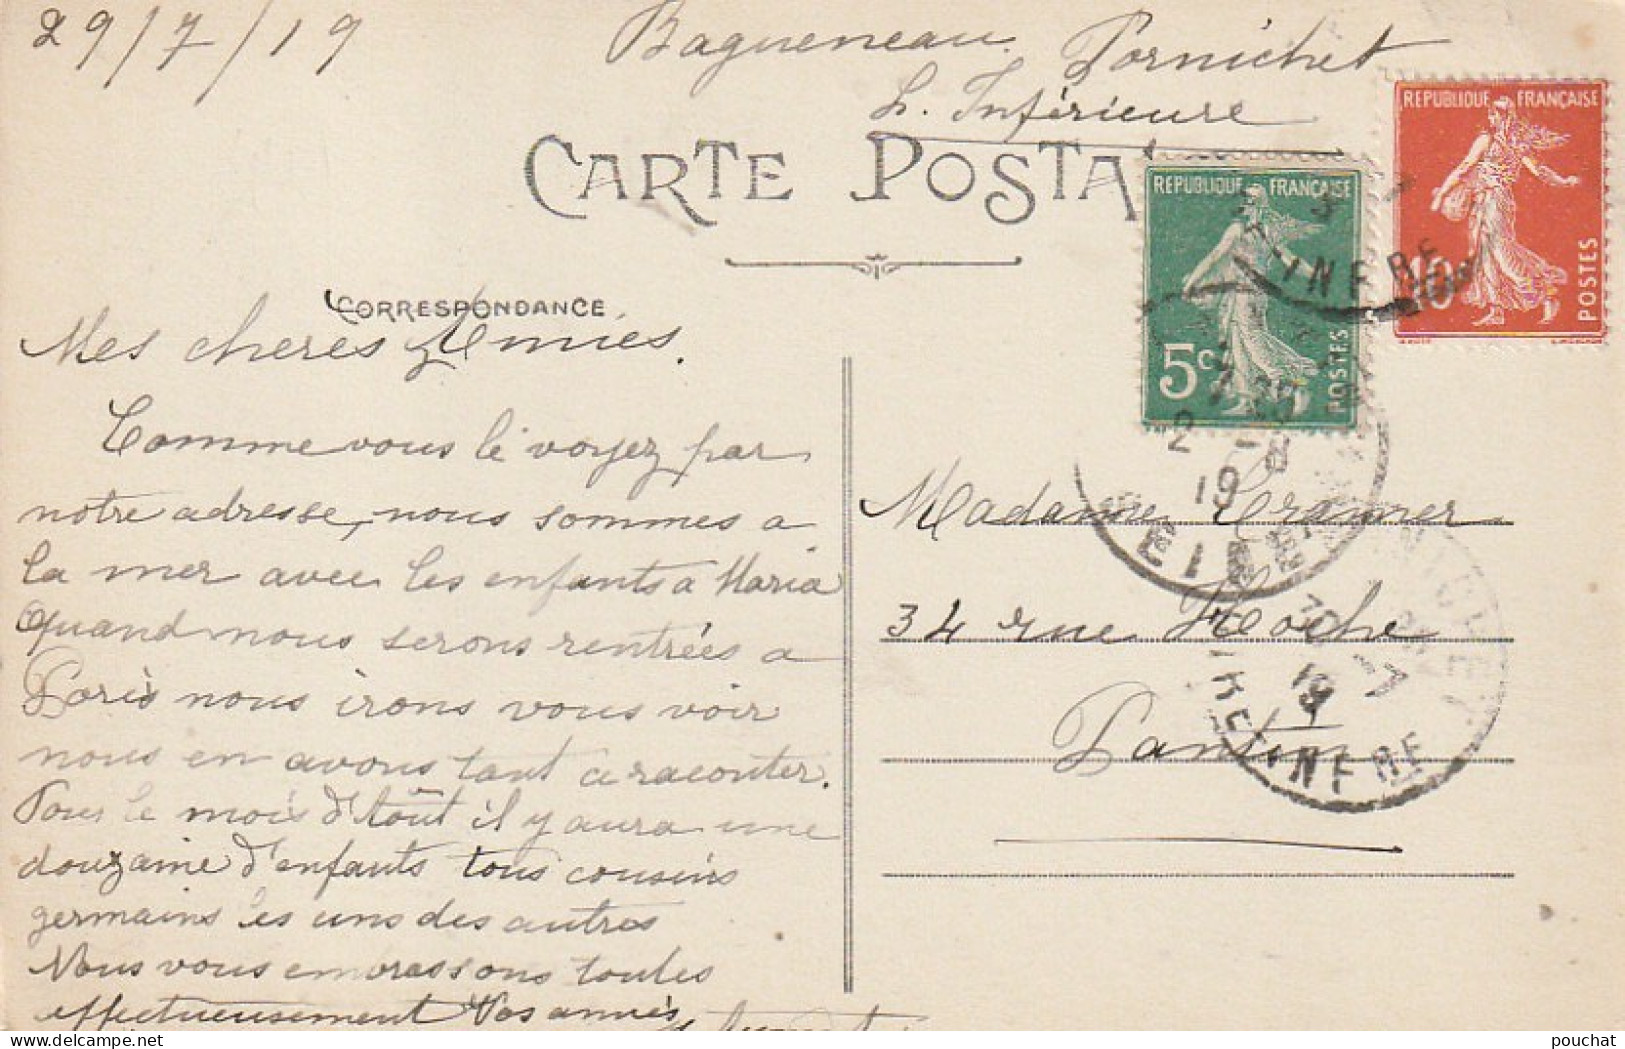 29/7/19
Bagueneau. Pornichet
L. Inférieure
CARTE POSTA
REPUBLIQUE FRANÇAISE
5c POSTES
REPUBLIQUE FRANÇAISE
10 POSTES
CORRESPONDANCE
Mes cheres Amies.
Comme vous le voyez par
notre adresse, nous sommes a
la mer avec les enfants a Maria
Quand nous serons rentrées a
Paris nous irons vous voir
nous en avons tant a raconter.
Pour le mois d'août il y aura une
douzaine d'enfants tous cousins
germains les uns des autres
Nous vous embrassons toutes
effectueusement Vos amies
Madame Cramer
34 rue Hoche
Pantin
2 - 8
19
30 - 7
19
INFRE
pouchat